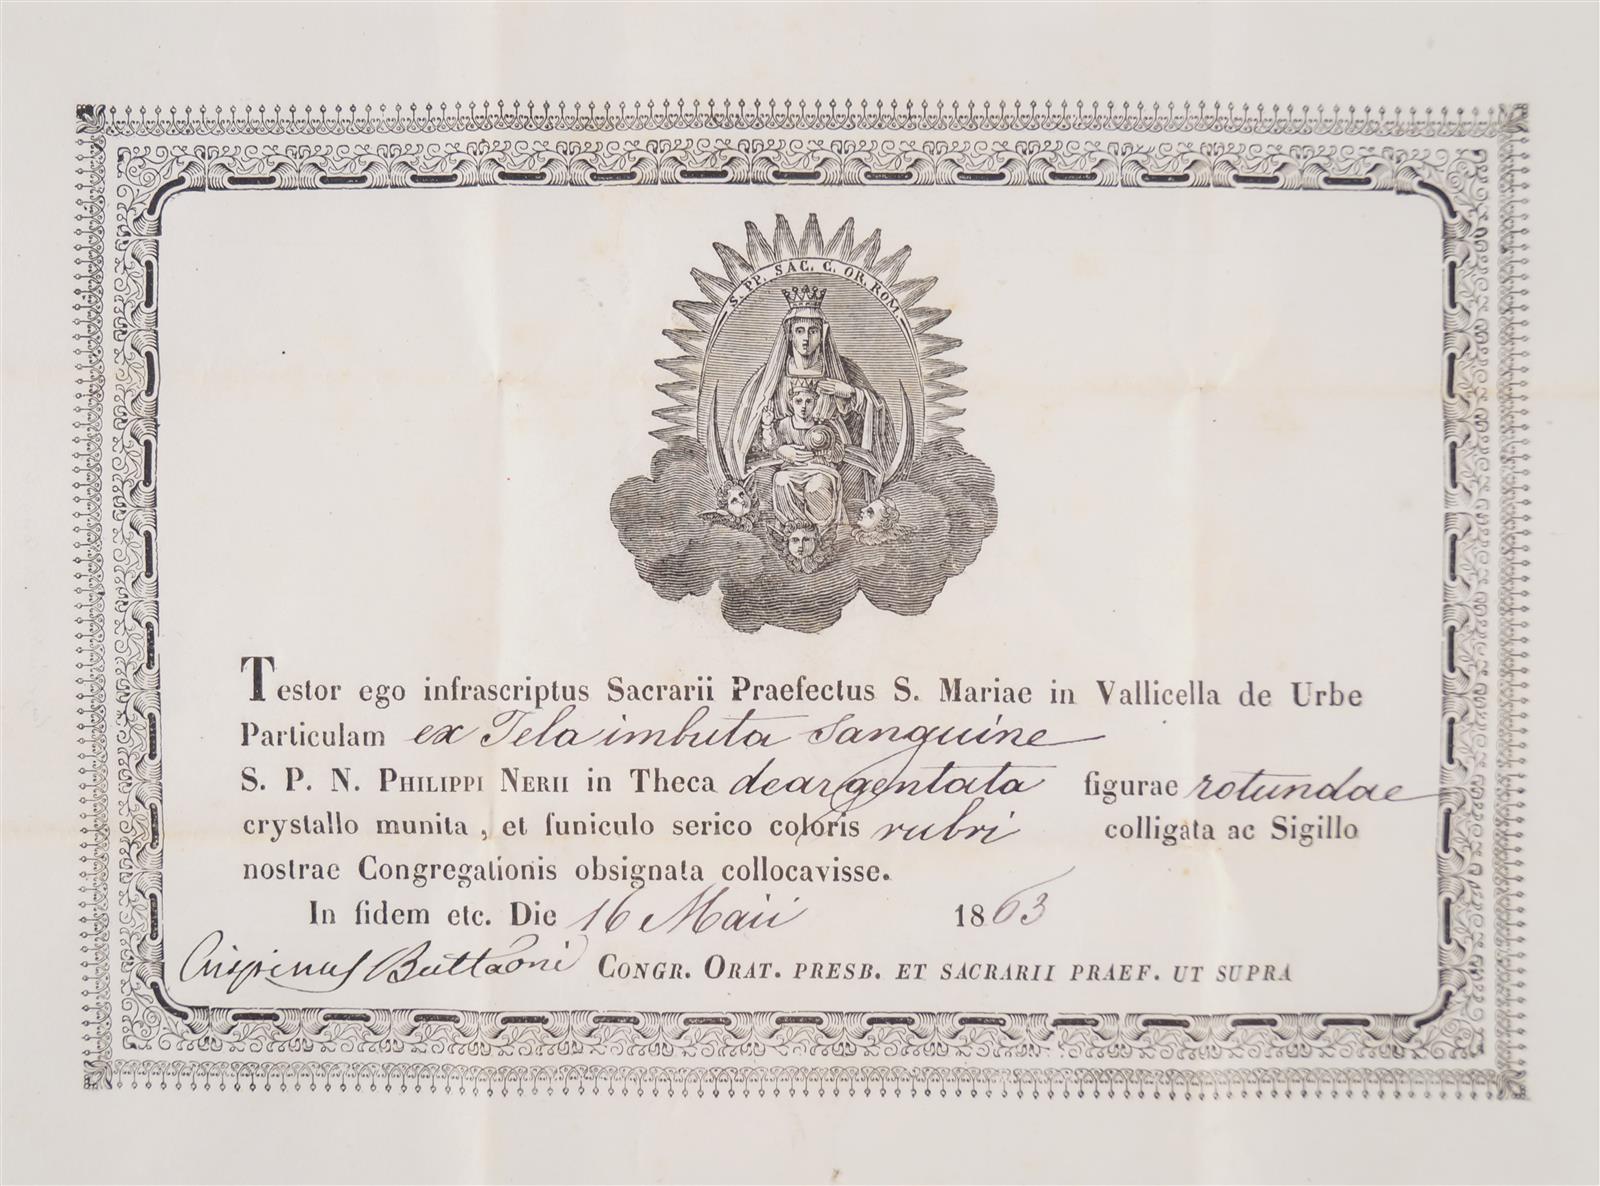 S. PP. SAC. C. OR. ROM.
Testor ego infrascriptus Sacrarii Praefectus S. Mariae in Vallicella de Urbe
Particulam ex Tela imbuta Sanguine
S. P. N. PHILIPPI NERII in Theca deargentata figurae rotundae
crystallo munita, et funiculo serico coloris rubri colligata ac Sigillo
nostrae Congregationis obsignata collocavisse.
In fidem etc. Die 16 Maii 1863
Crispinus Buttaoni CONGR. ORAT. PRESB. ET SACRARII PRAEF. UT SUPRA